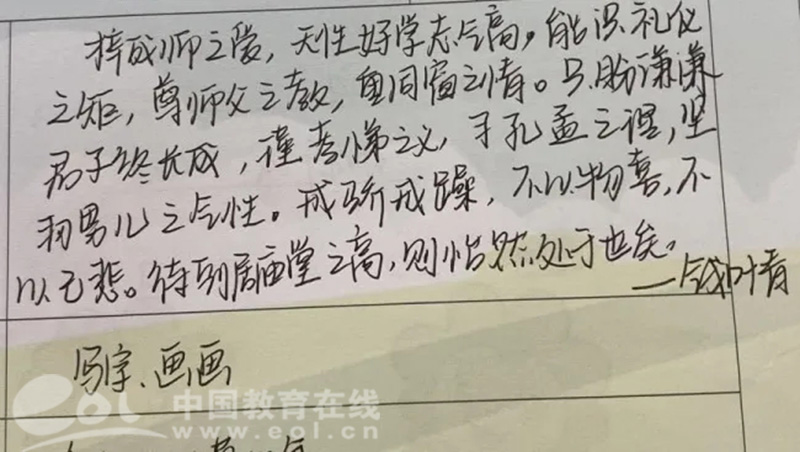 梓成师之爱，天性好学志气高。能识礼仪
之矩，尊师父之教，重同窗之情。只盼谦谦
君子终长成，谨孝悌之义，于孔孟之谓，坚
韧男儿之气性。戒骄戒躁，不以物喜，不
以已悲。待到居庙堂之高，则怡然处于也矣。
——钱叶青
写字、画画
eol 中国教育在线
www.eol.cn